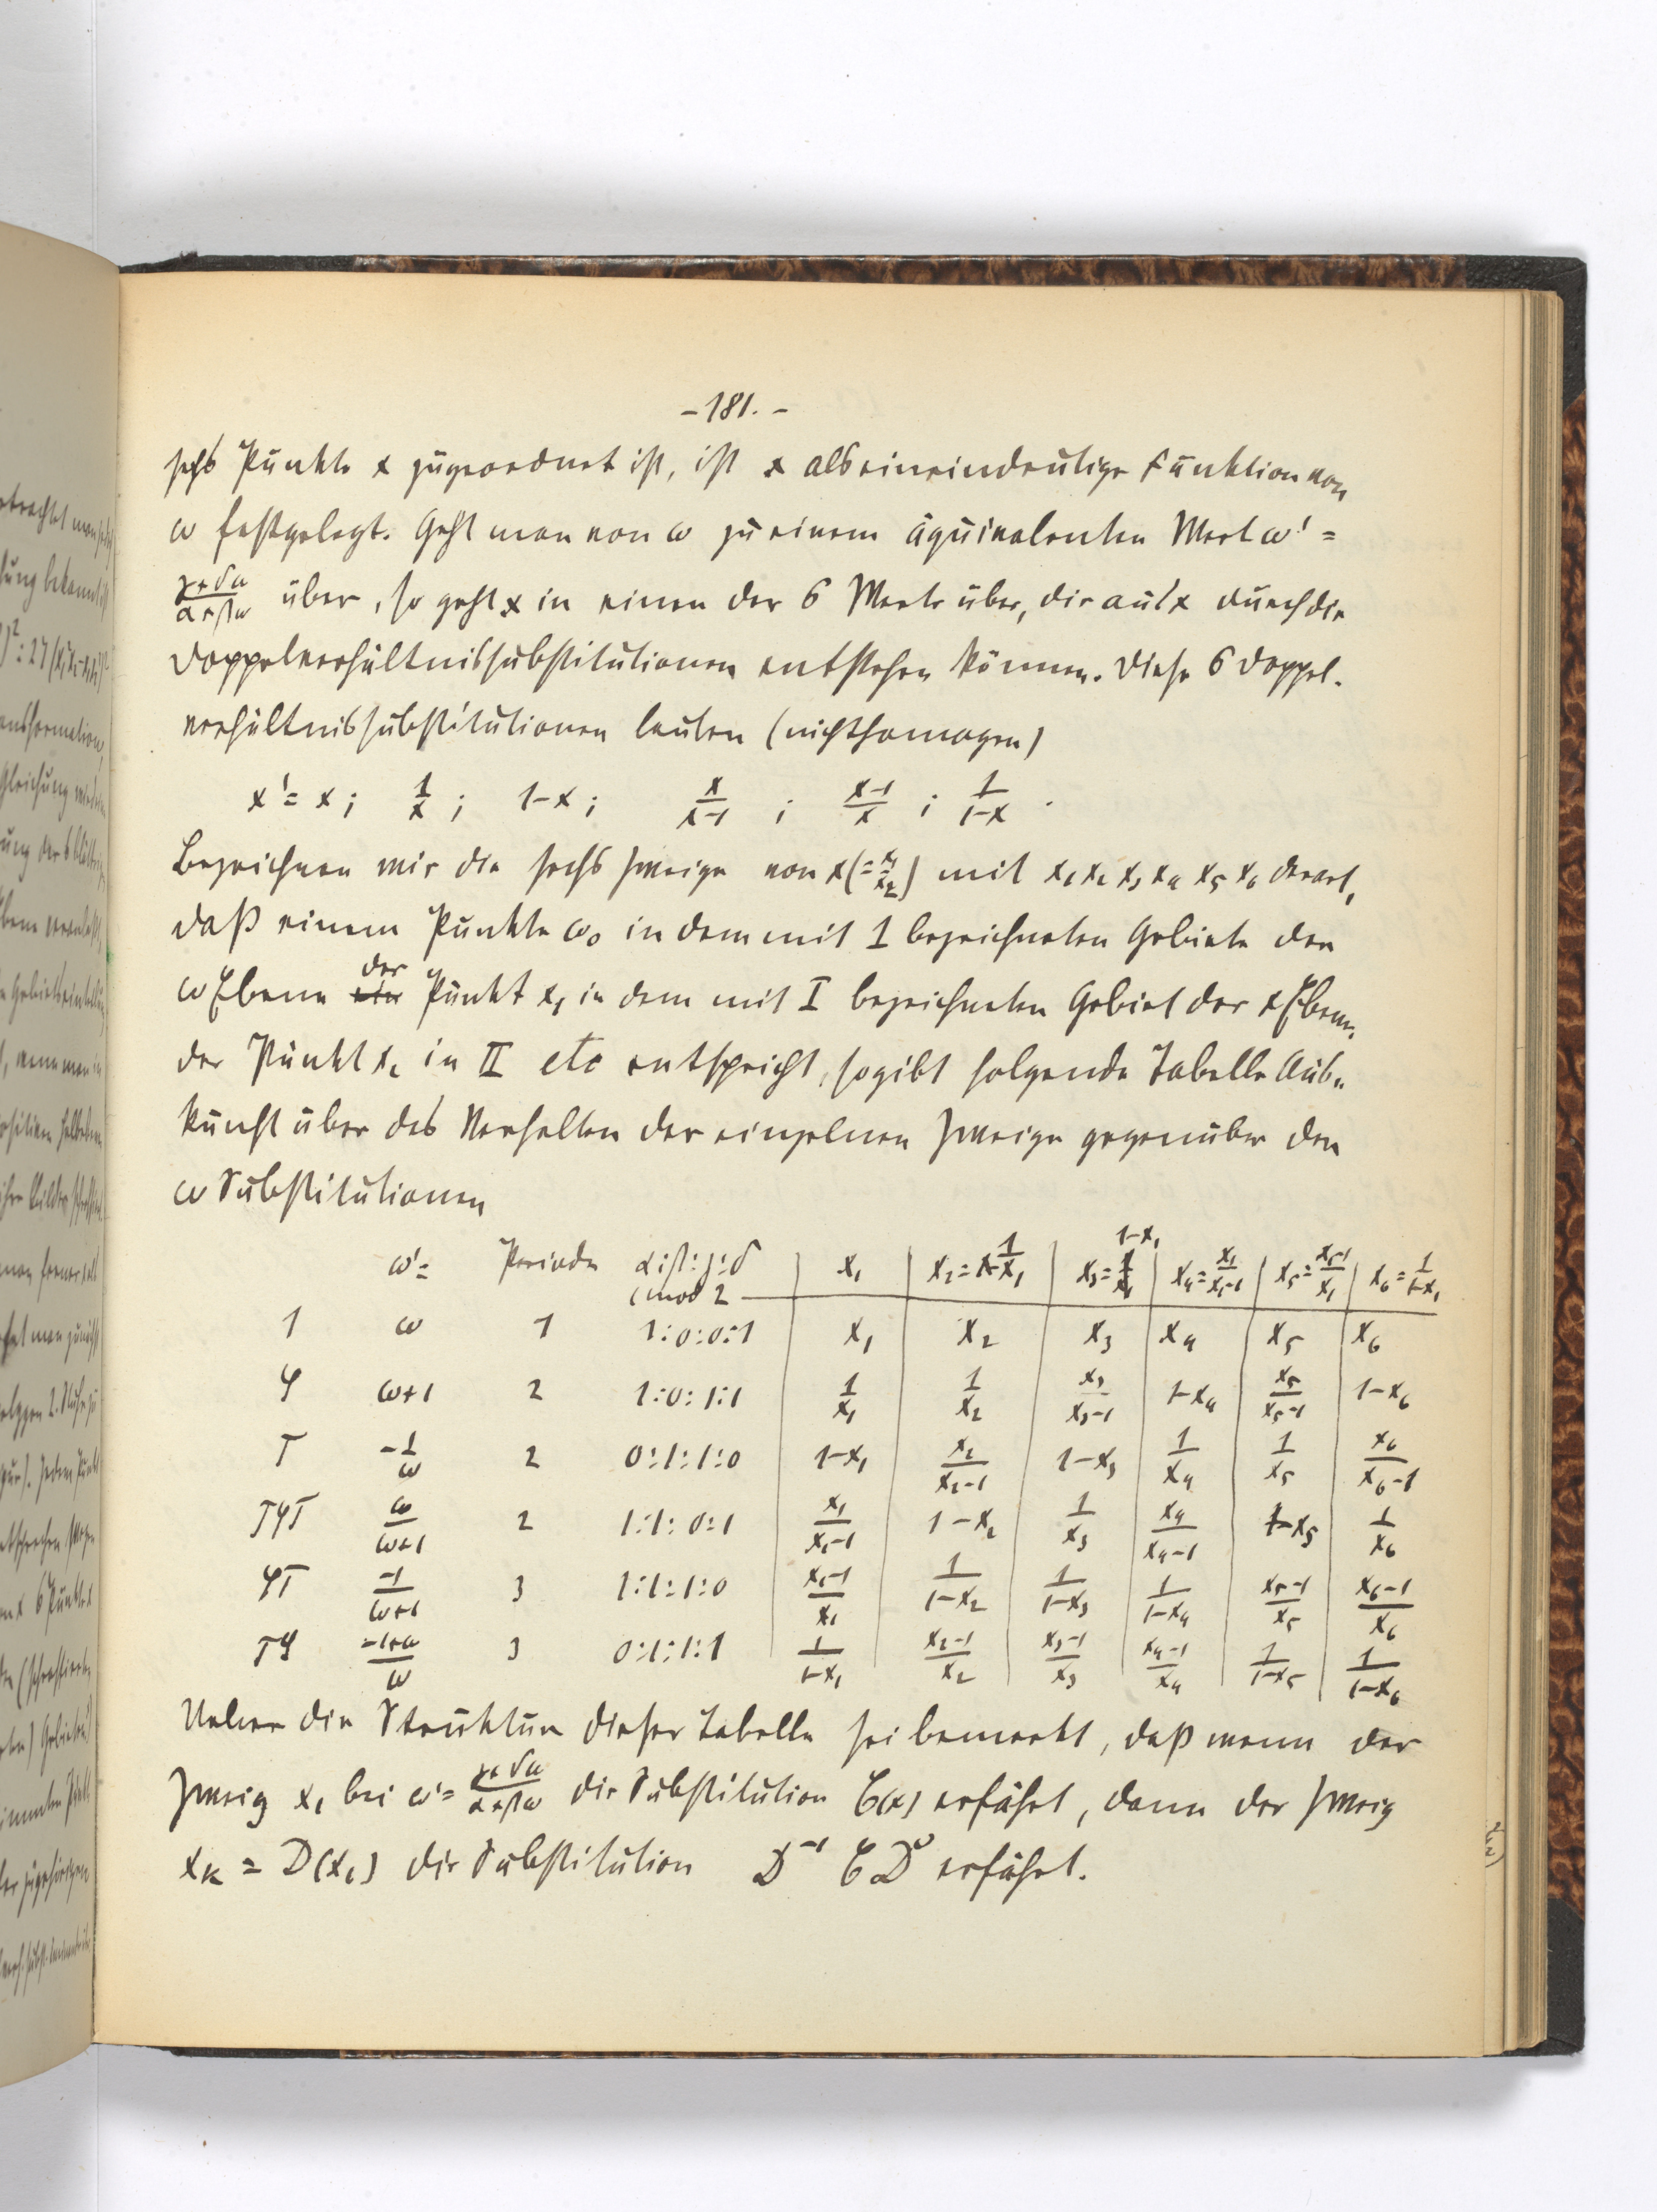 -181.-
sechs Punkte x zugeordnet ist, ist x als eineindeutige Funktion von
ω festgelegt. Geht man von ω zu einem äquivalenten Wert ω' =
(γ+δω)/(α+βω) über, so geht x in einen der 6 Werte über, die aus x durch die
Doppelverhältnissubstitutionen entstehen können. Diese 6 Doppel-
verhältnissubstitutionen lauten (nichthomogen)
x' = x ; 1/x ; 1-x ; x/(x-1) ; (x-1)/x ; 1/(1-x) .
Bezeichnen wir die sechs Zweige von x (= x₁/x₂) mit x₁ x₂ x₃ x₄ x₅ x₆ derart,
daß einem Punkte ω₀ in dem mit 1 bezeichneten Gebiete der
ω Ebene der Punkt x₁ in dem mit I bezeichneten Gebiet der x Ebene,
der Punkt x₂ in II etc entspricht, so gibt folgende Tabelle Aus-
kunft über das Verhalten der einzelnen Zweige gegenüber den
ω Substitutionen
ω'= Periode α:β:γ:δ (mod 2 x₁ x₂=1/x₁ x₃=1-x₁ x₄=x₁/(x₁-1) x₅=(x₁-1)/x₁ x₆=1/(1-x₁)
1 ω 1 1:0:0:1 x₁ x₂ x₃ x₄ x₅ x₆
φ ω+1 2 1:0:1:1 1/x₁ 1/x₂ x₃/(x₃-1) 1-x₄ x₅/(x₅-1) 1-x₆
T -1/ω 2 0:1:1:0 1-x₁ x₂/(x₂-1) 1-x₃ 1/x₄ 1/x₅ x₆/(x₆-1)
TφT ω/(ω+1) 2 1:1:0:1 x₁/(x₁-1) 1-x₂ 1/x₃ x₄/(x₄-1) 1-x₅ 1/x₆
φT -1/(ω+1) 3 1:1:1:0 (x₁-1)/x₁ 1/(1-x₂) 1/(1-x₃) 1/(1-x₄) (x₅-1)/x₅ (x₆-1)/x₆
Tφ (-1+ω)/ω 3 0:1:1:1 1/(1-x₁) (x₂-1)/x₂ (x₃-1)/x₃ (x₄-1)/x₄ 1/(1-x₅) 1/(1-x₆)
Ueber die Struktur dieser Tabelle sei bemerkt, daß wenn der
Zweig x₁ bei ω'= (γ+δω)/(α+βω) die Substitution C(x) erfährt, dann der Zweig
xₖ = D(x₁) die Substitution D⁻¹ C D erfährt.